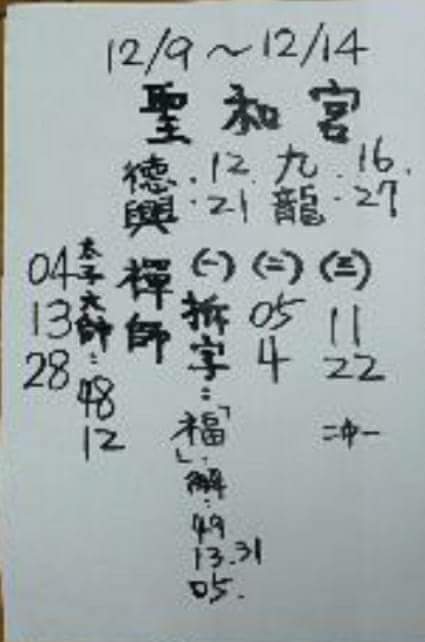 12/9 ~ 12/14
聖和宮
德興 · 12 · 21
九龍 · 16 · 27
禪師
04
13
28
太子大師：
48
12
(一)
拆字：
「福」
解：
49
13.31
05.
(二)
05
4
(三)
11
22
二中一